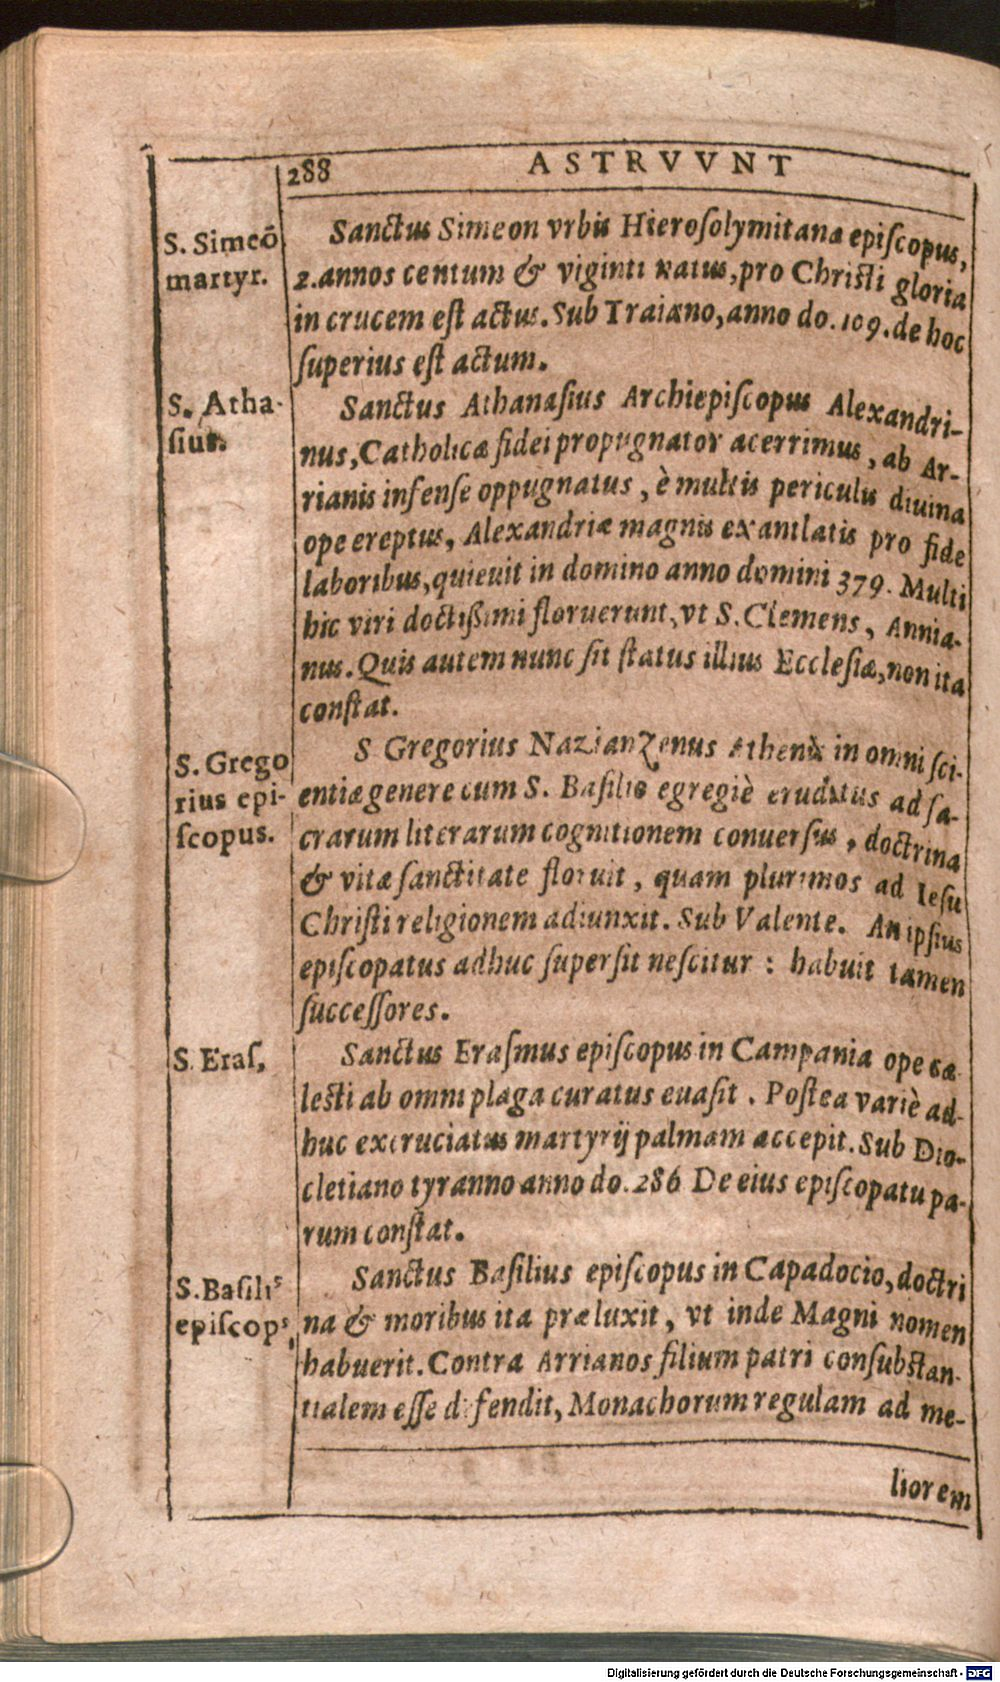 288 ASTRVVNT
S. Simeō
martyr.
Sanctus Simeon vrbis Hierosolymitana episcopus,
2. annos centum & viginti natus, pro Christi gloria
in crucem est actus. Sub Traiano, anno do. 109. de hoc
superius est actum.
S. Atha-
sius.
Sanctus Athanasius Archiepiscopus Alexandri-
nus, Catholicæ fidei propugnator acerrimus, ab Ar-
rianis infense oppugnatus, è multis periculis diuina
ope ereptus, Alexandriæ magnis exantlatis pro fide
laboribus, quieuit in domino anno domini 379. Multi
hic viri doctißimi floruerunt, vt S. Clemens, Annia-
nus. Quis autem nunc sit status illius Ecclesiæ, non ita
constat.
S. Grego
rius epi-
scopus.
S Gregorius Nazianzenus Athenis in omni sci-
entiæ genere cum S. Basilio egregiè eruditus ad sa-
crarum literarum cognitionem conuersus, doctrina
& vitæ sanctitate floruit, quam plurimos ad Iesu
Christi religionem adiunxit. Sub Valente. An ipsius
episcopatus adhuc supersit nescitur : habuit tamen
successores.
S. Eras,
Sanctus Erasmus episcopus in Campania ope cæ-
lesti ab omni plaga curatus euasit. Postea variè ad-
huc excruciatus martyrij palmam accepit. Sub Dio-
cletiano tyranno anno do. 286 De eius episcopatu pa-
rum constat.
S. Basiliꝰ
episcopꝰ,
Sanctus Basilius episcopus in Capadocio, doctri
na & moribus ita præluxit, vt inde Magni nomen
habuerit. Contra Arrianos filium patri consubstan-
tialem esse defendit, Monachorum regulam ad me-
liorem
Digitalisierung gefördert durch die Deutsche Forschungsgemeinschaft - DFG